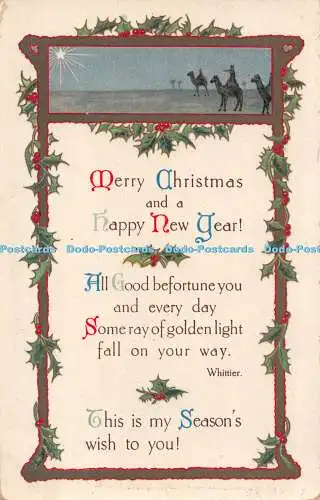 Merry Christmas
and a
Happy New Year!
Postcards Dodo-Postcards Dodo-Postcards Dodo-Postcards Dodo-
All Good befortune you
and every day
Some ray of golden light
fall on your way.
Whittier.
This is my Season's
wish to you!